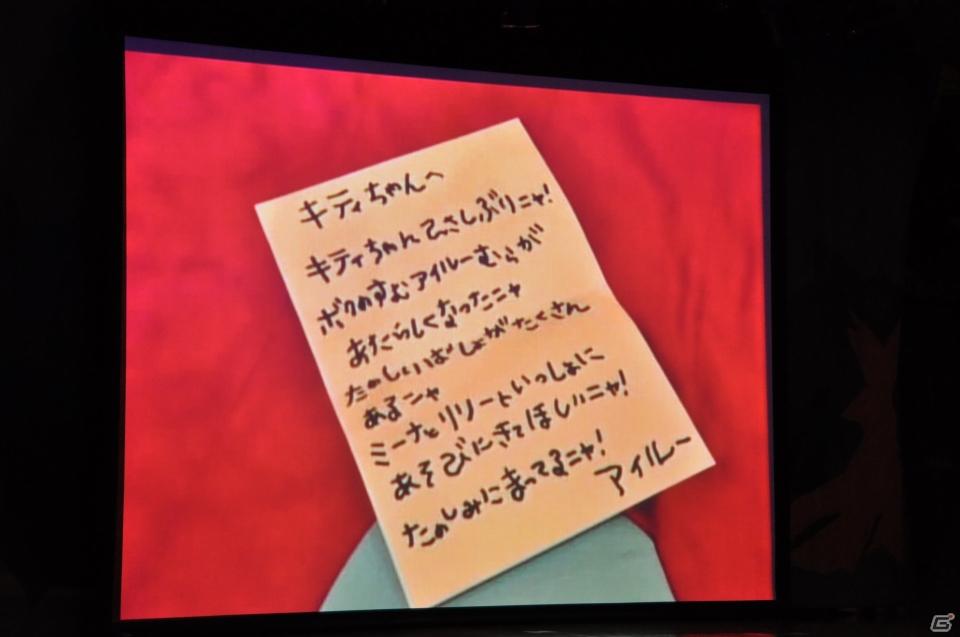 キティちゃんへ
キティちゃんひさしぶりニャ!
ボクのすむアイルーむらが
あたらしくなったニャ
たのしいばしょがたくさん
あるニャ
ミーナとリリートいっしょに
あそびにきてほしいニャ!
たのしみにまってるニャ!
アイルー